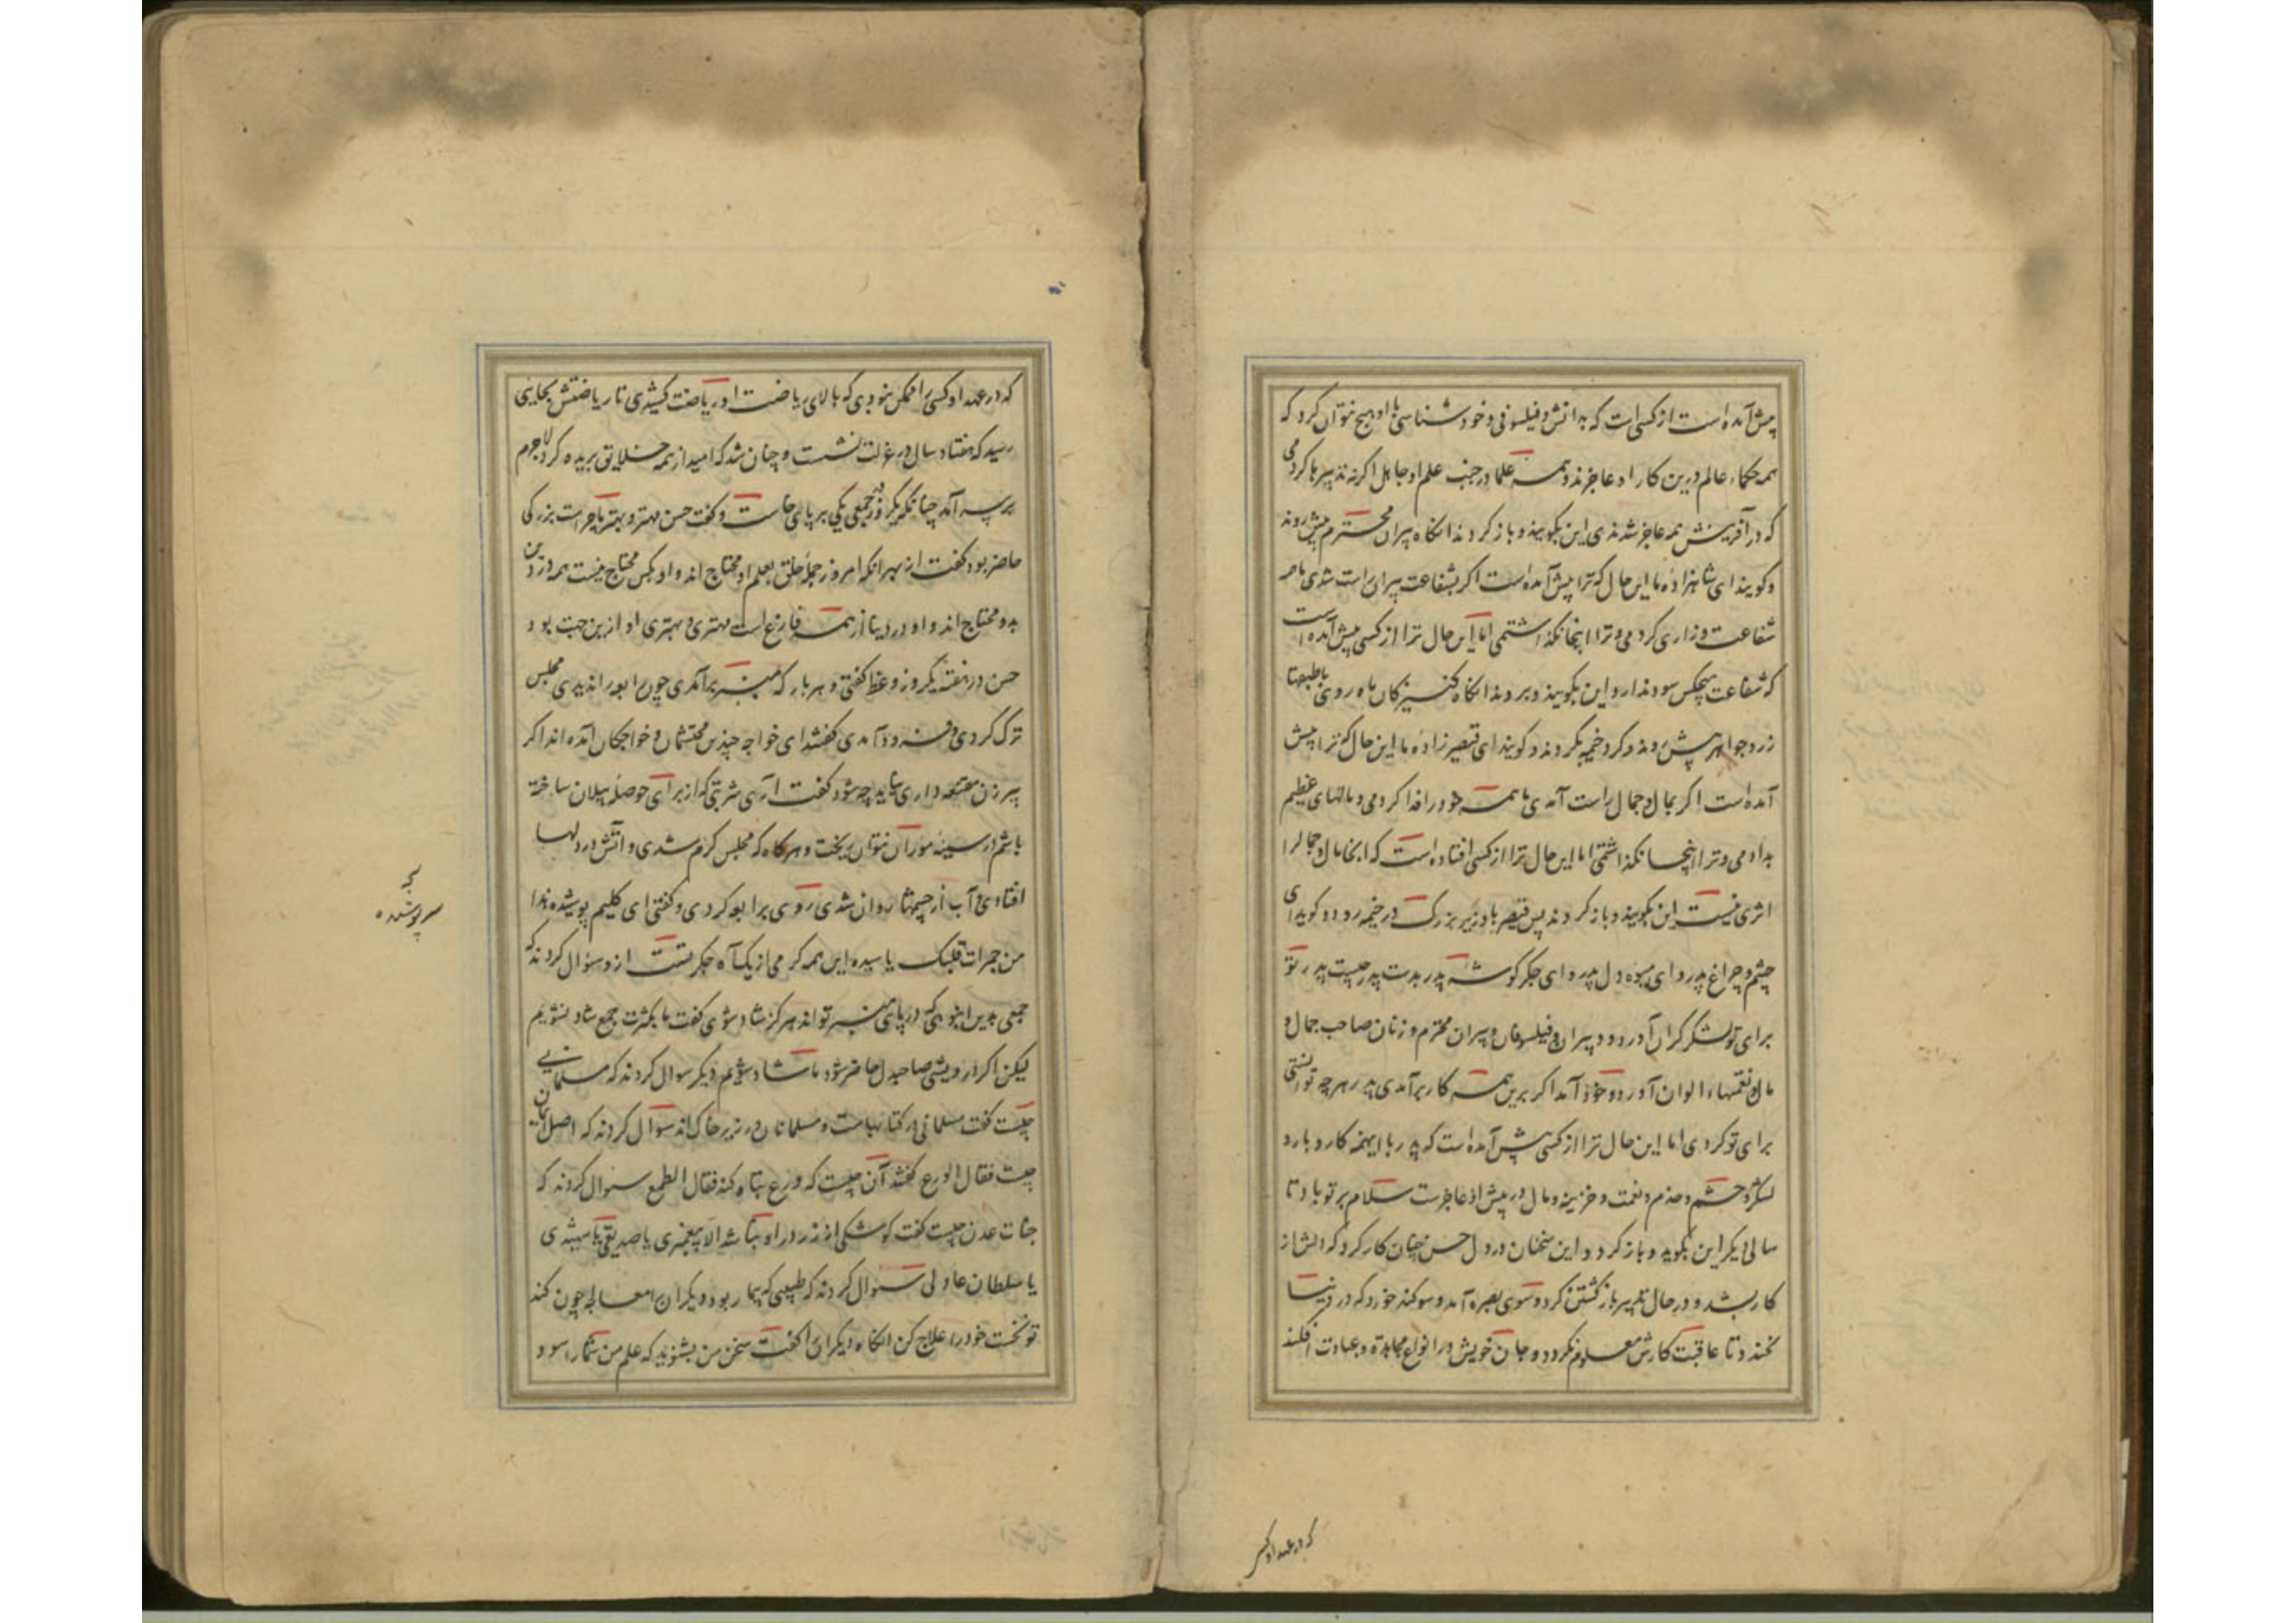 پیش آمده است از کسی است که بدانش و فیلسوفی و خودشناسی با او هیچ نتوان کرد که
همه حکماء عالم درین کار او عاجزند و همه علما در جنب علم او جاهل اکرنه تدبیرها کردمی
که در آفرینش همه عاجز شدندی این بکویند و باز کردند آنکاه پیران محترم پیش روند
و کویند ای شاهزاده ما این حال که ترا پیش آمده است اکر بشفاعت پیران راست شدی ما همه
شفاعت و زاری کردمی و ترا اینجا نکذاشتمی اما این حال ترا از کسی پیش آمده است
که شفاعت هیچکس سود ندارد این بکویند و بروند آنکاه کنیزکان ماه روی با طبقها
زر و جواهر پیش روند و کرد خیمه بکردند و کویند ای قیصرزاده ما این حال که ترا پیش
آمده است اکر بمال و جمال راست آمدی ما همه خود را فدا کردمی و مالهای عظیم
بدادمی و ترا اینجا نکذاشتمی اما این حال ترا از کسی افتاده است که اینجا مال و جمال را
اثری نیست این بکویند و باز کردند پس قیصر با وزیر بزرک در خیمه رود و کوید ای
چشم و چراغ پدر و ای میوه دل پدر و ای جکر کوشه پدر بدست پدر چیست پدر تو
برای تو لشکر کران آورد و دبیران و فیلسوفان و پیران محترم و زنان صاحب جمال و
مال و نعمتهاء الوان آورد و خود آمد اکر برین همه کار برآمدی پدر هرچه توانستی
برای تو کردی اما این حال ترا از کسی پیش آمده است که پدر با اینهمه کار و بار و
لشکر و حشم و خدم و نعمت و خزینه و مال در پیش او عاجز است سلام بر تو باد تا
سالی دیکر این بکوید و باز کردد این سخنان در دل حسن چنان کار کرد که دلش از
کار بشد و در حال تدبیر باز کشتن کرد و سوی بصره آمد و سوکند خورد که در دنیا
نخندد تا عاقبت کارش معلوم نکردد و جان خویش در انواع مجاهده و عبادت افکند
که در عهد او کسی
که در عهد او کسی را ممکن نبودی که بالای ریاضت او ریاضت کشیدی تا ریاضتش بجایی
رسید که هفتاد سال در عزلت نشست و چنان شد که امید از همه خلایق بریده کرد لاجرم
برسر آمد چنانکه یکروز جمعی یکی بر پای خاست و کفت حسن مهتر و بهتر ما چراست بزرکی
حاضر بود کفت از بهر آنکه امروز جمله خلق بعلم او محتاج اند و او بکس محتاج نیست همه در دین
بدو محتاج اند و او در دنیا از همه فارغ است مهتری و بهتری او ازین جهت بود
حسن در هفته یکروز وعظ کفتی و هر بار که بمنبر برآمدی چون رابعه را ندیدی مجلس
ترک کردی و فرود آمدی کفتند ای خواجه چندین محتشمان و خواجکان آمده اند اکر
پیرزن مقنعه داری نیاید چه شود کفت آری شربتی که از برای حوصله پیلان ساخته
باشم در سینه موران نتوان ریخت و هرکاه که مجلس کرم شدی و آتش در دلها
افتادی و آب از چشمها روان شدی روی برابعه کردی و کفتی ای کلیم پوشیده هذا
من جمرات قلبک یا سیده این همه کرمی از یک آه جکر تست ازو سؤال کردند که
جمعی بدین انبوهی که در پای منبر تو اند هرکز شاد شوی کفت ما بکثرت جمع شاد نشویم
لیکن اکر درویشی صاحبدل حاضر شود ما شاد شویم دیکر سوال کردند که مسلمانی
چیست کفت مسلمانی در کتابهاست و مسلمانان در زیر خاک اند سؤال کردند که اصل ایمان
چیست فقال الورع کفتند آن چیست که ورع تباه کند فقال الطمع سؤال کردند که
جنات عدن چیست کفت کوشکی از زر در او نباشد الا پیغمبری یا صدیقی یا شهیدی
یا سلطان عادلی سؤال کردند که طبیبی که بیمار بود دیکران را معالجه چون کند
تو نخست خود را علاج کن آنکاه دیکران را کفت سخن من بشنوید که علم من شما را سود
سرپوشیده